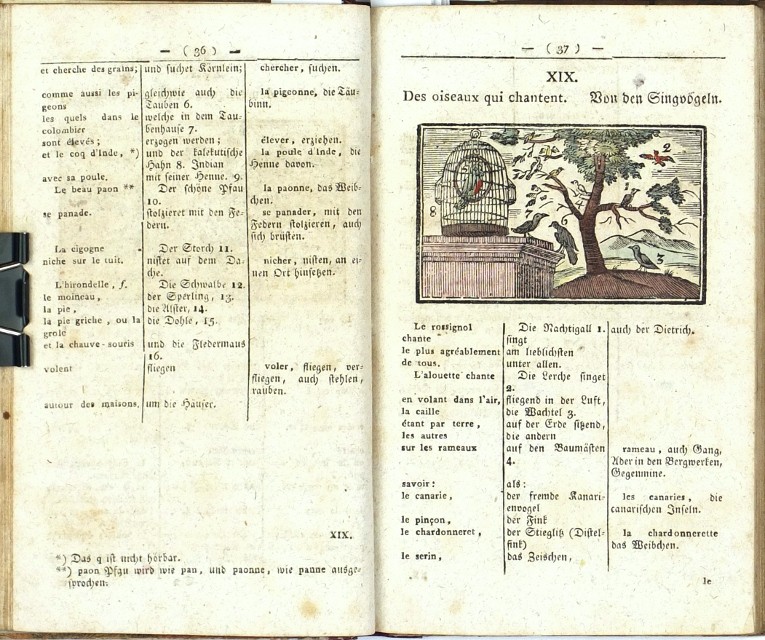 — ( 36 ) —
et cherche des grains; und suchet Körnlein; chercher, suchen.
comme aussi les pi- gleichwie auch die la pigeonne, die Täu-
geons Tauben 6. binn.
les quels dans le welche in dem Tau-
colombier benhause 7.
sont élevés; erzogen werden; élever, erziehen.
et le coq d'Inde, *) und der kalekutische la poule d'Inde, die
Hahn 8. Indian Henne davon.
avec sa poule. mit seiner Henne. 9.
Le beau paon ** Der schöne Pfau la paonne, das Weib-
10. chen.
se panade. stolzieret mit den Fe- se panader, mit den
dern. Federn stolzieren, auch
sich brüsten.
La cigogne Der Storch 11.
niche sur le tuit. nistet auf dem Da- nicher, nisten, an ei-
che. nen Ort hinsetzen.
L'hirondelle, f. Die Schwalbe 12.
le moineau, der Sperling, 13.
la pie, die Alster, 14.
la pie griche, ou la die Dohle, 15.
grole
et la chauve-souris und die Fledermaus
16.
volent fliegen voler, fliegen, ver-
fliegen, auch stehlen,
rauben.
autour des maisons. um die Häuser.
XIX.
*) Das q ist nicht hörbar.
**) paon Pfau wird wie pan, und paonne, wie panne ausge-
sprochen.
— ( 37 ) —
XIX.
Des oiseaux qui chantent. Von den Singvögeln.
1
2
3
4
6
7
8
Le rossignol Die Nachtigall 1. auch der Dietrich.
chante singt
le plus agréablement am lieblichsten
de tous. unter allen.
L'alouette chante Die Lerche singet
2.
en volant dans l'air, fliegend in der Luft,
la caille die Wachtel 3.
étant par terre, auf der Erde sitzend,
les autres die andern
sur les rameaux auf den Baumästen rameau, auch Gang,
4. Ader in den Bergwerken,
Gegenmine.
savoir: als:
le canarie, der fremde Kanari- les canaries, die
envogel canarischen Inseln.
le pinçon, der Fink
le chardonneret, der Stieglitz (Distel- la chardonnerette
fink) das Weibchen.
le serin, das Zeischen,
le